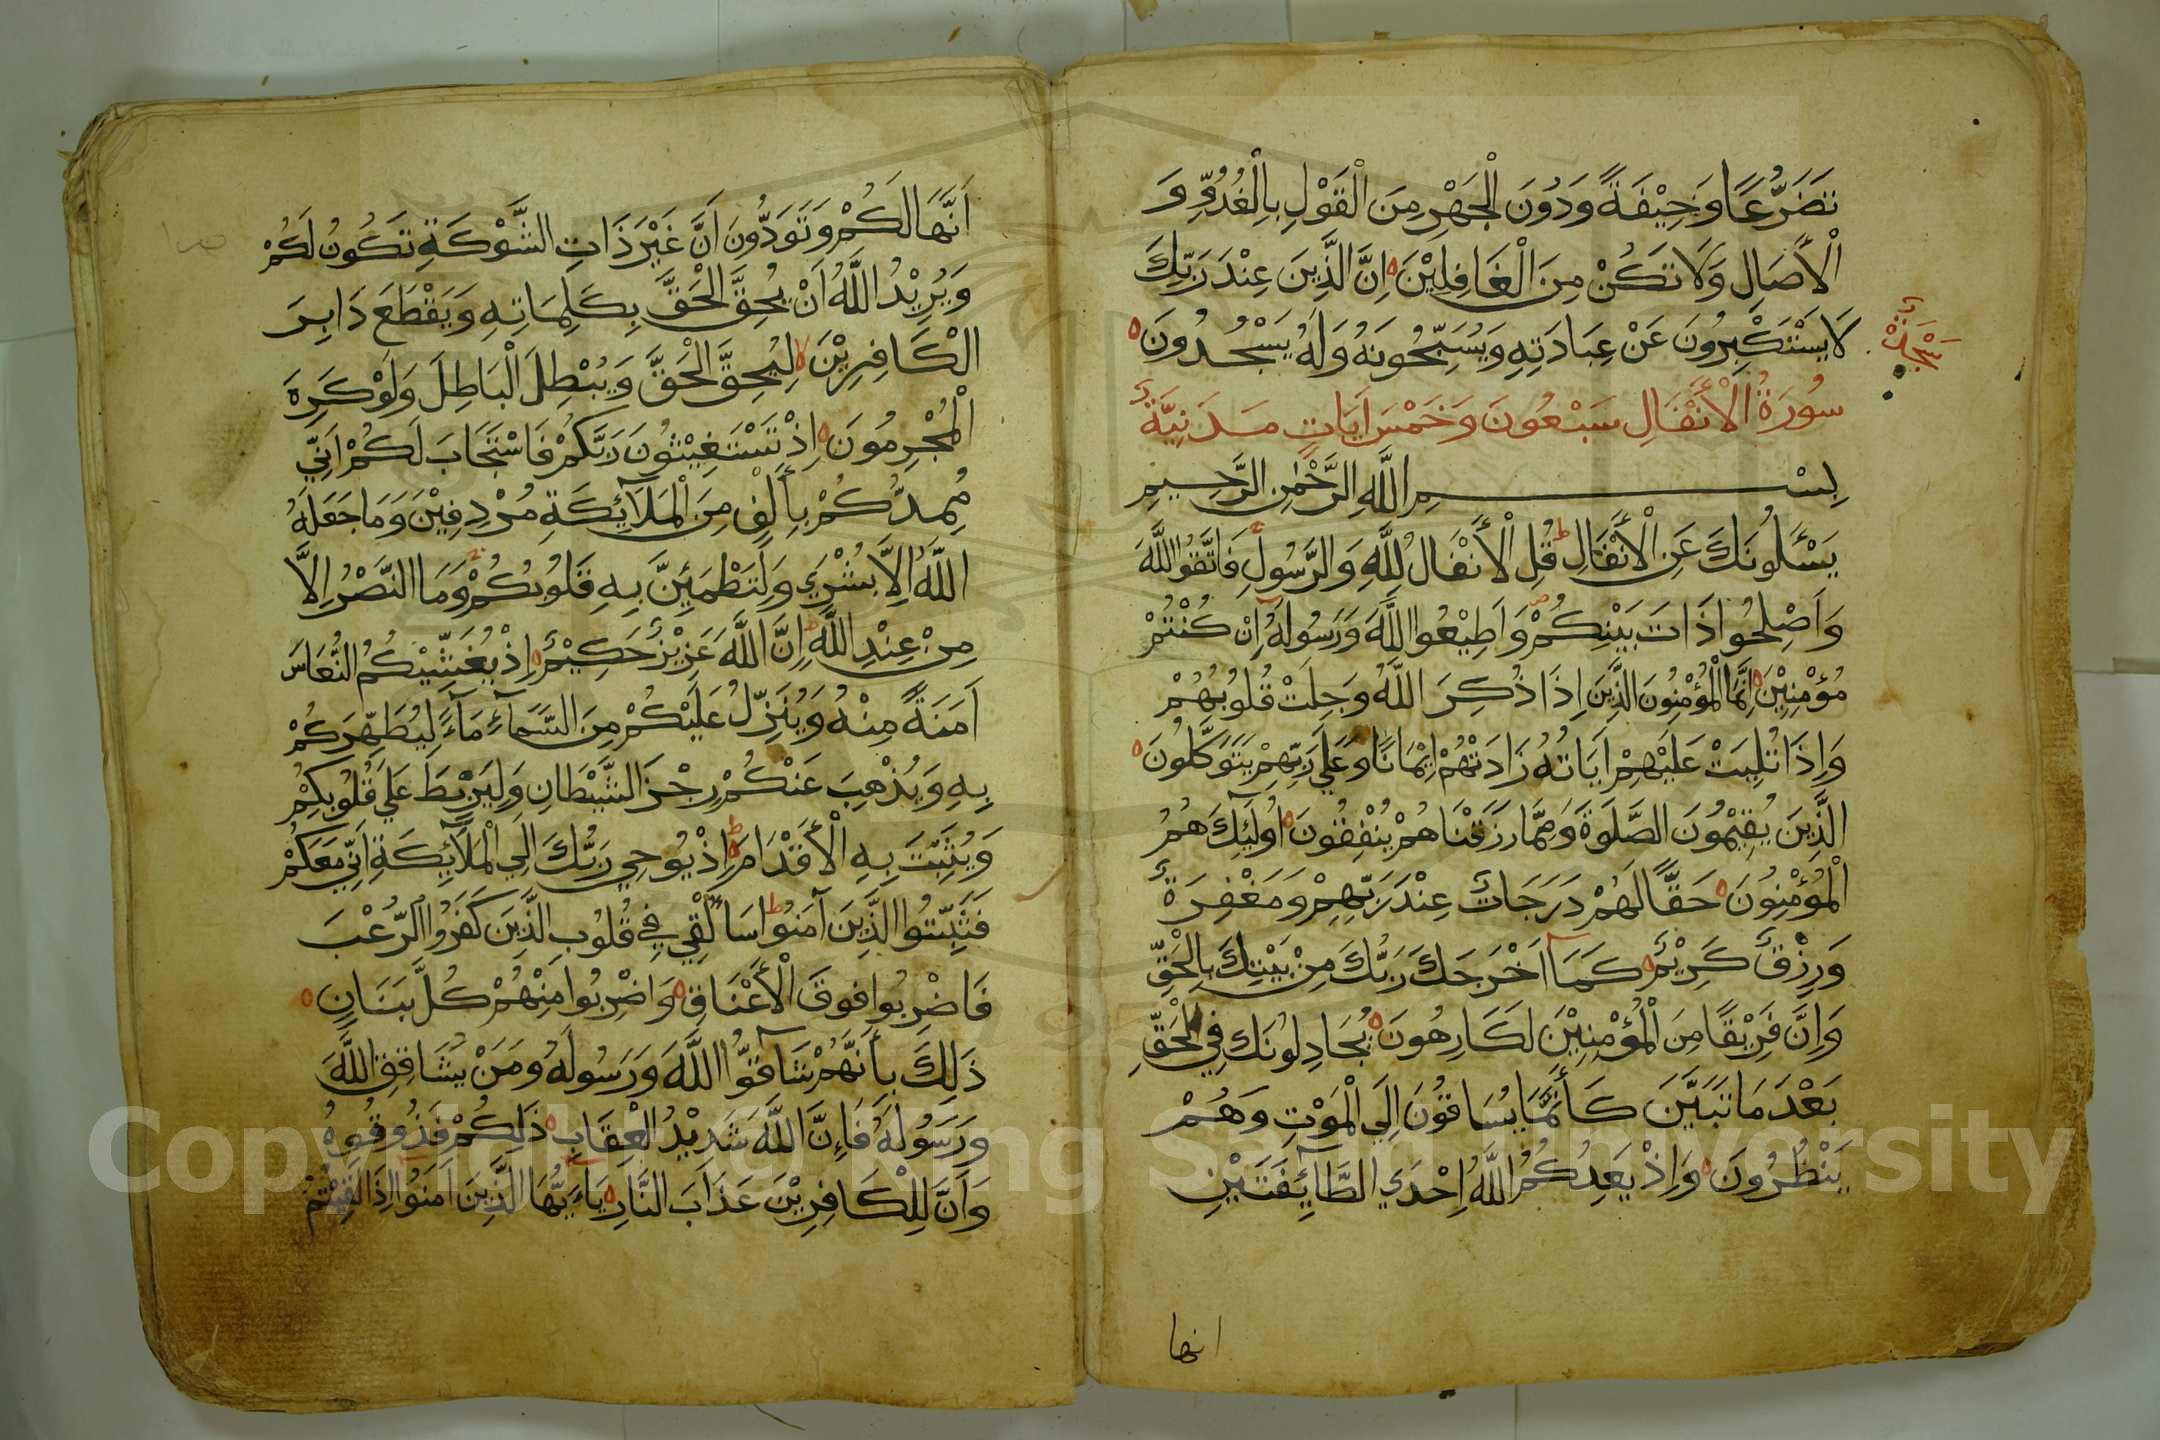 تَضَرُّعًا وَخِيْفَةً وَدُونَ الْجَهْرِ مِنَ الْقَوْلِ بِالْغُدُوِّ وَ
الْأَصَالِ وَلَا تَكُنْ مِنَ الْغَافِلِيْنَ اِنَّ الَّذِينَ عِنْدَ رَبِّكَ
لَا يَسْتَكْبِرُونَ عَنْ عِبَادَتِهِ وَيُسَبِّحُونَهُ وَلَهُ يَسْجُدُونَ
سَجْدَةٌ
سُورَةُ الْأَنْفَالِ سَبْعُونَ وَخَمْسَ اٰيَاتٍ مَدَنِيَّةٌ
بِسْمِ اللَّهِ الرَّحْمٰنِ الرَّحِيمِ
يَسْأَلُونَكَ عَنِ الْأَنْفَالِ قُلِ الْأَنْفَالُ لِلَّهِ وَالرَّسُولِ فَاتَّقُوا اللَّهَ
وَاَصْلِحُوا ذَاتَ بَيْنِكُمْ وَاَطِيْعُوا اللَّهَ وَرَسُولَهُ اِنْ كُنْتُمْ
مُؤْمِنِيْنَ اِنَّمَا الْمُؤْمِنُونَ الَّذِينَ اِذَا ذُكِرَ اللَّهُ وَجِلَتْ قُلُوبُهُمْ
وَاِذَا تُلِيَتْ عَلَيْهِمْ اٰيَاتُهُ زَادَتْهُمْ اِيْمَانًا وَعَلَي رَبِّهِمْ يَتَوَكَّلُونَ
الَّذِينَ يُقِيْمُونَ الصَّلَوةَ وَمِمَّا رَزَقْنَاهُمْ يُنْفِقُونَ اُولَٓئِكَ هُمُ
الْمُؤْمِنُونَ حَقًّا لَهُمْ دَرَجَاتٌ عِنْدَ رَبِّهِمْ وَمَغْفِرَةٌ
وَرِزْقٌ كَرِيْمٌ كَمَا اَخْرَجَكَ رَبُّكَ مِنْ بَيْتِكَ بِالْحَقِّ
وَاِنَّ فَرِيْقًا مِنَ الْمُؤْمِنِيْنَ لَكَارِهُونَ يُجَادِلُونَكَ فِي الْحَقِّ
بَعْدَ مَا تَبَيَّنَ كَأَنَّمَا يُسَاقُونَ اِلَي الْمَوْتِ وَهُمْ
يَنْظُرُونَ وَاِذْ يَعِدُكُمُ اللَّهُ اِحْدَي الطَّآئِفَتَيْنِ
انها
اَنَّهَا لَكُمْ وَتَوَدُّونَ اَنَّ غَيْرَ ذَاتِ الشَّوْكَةِ تَكُونُ لَكُمْ
وَيُرِيْدُ اللَّهُ اَنْ يُحِقَّ الْحَقَّ بِكَلِمَاتِهِ وَيَقْطَعَ دَابِرَ
الْكَافِرِيْنَ لِيُحِقَّ الْحَقَّ وَيُبْطِلَ الْبَاطِلَ وَلَوْ كَرِهَ
الْمُجْرِمُونَ اِذْ تَسْتَغِيْثُونَ رَبَّكُمْ فَاسْتَجَابَ لَكُمْ اَنِّي
مُمِدُّكُمْ بِأَلْفٍ مِنَ الْمَلَآئِكَةِ مُرْدِفِيْنَ وَمَا جَعَلَهُ
اللَّهُ اِلَّا بُشْرَي وَلِتَطْمَئِنَّ بِهِ قُلُوبُكُمْ وَمَا النَّصْرُ اِلَّا
مِنْ عِنْدِ اللَّهِ اِنَّ اللَّهَ عَزِيْزٌ حَكِيْمٌ اِذْ يُغَشِّيْكُمُ النُّعَاسَ
اَمَنَةً مِنْهُ وَيُنَزِّلُ عَلَيْكُمْ مِنَ السَّمَآءِ مَآءً لِيُطَهِّرَكُمْ
بِهِ وَيُذْهِبَ عَنْكُمْ رِجْزَ الشَّيْطَانِ وَلِيَرْبِطَ عَلَي قُلُوبِكُمْ
وَيُثَبِّتَ بِهِ الْأَقْدَامَ اِذْ يُوحِي رَبُّكَ اِلَي الْمَلَآئِكَةِ اَنِّي مَعَكُمْ
فَثَبِّتُوا الَّذِينَ آمَنُوا سَأُلْقِي فِي قُلُوبِ الَّذِينَ كَفَرُوا الرُّعْبَ
فَاضْرِبُوا فَوْقَ الْأَعْنَاقِ وَاضْرِبُوا مِنْهُمْ كُلَّ بَنَانٍ
ذَلِكَ بِأَنَّهُمْ شَآقُّوا اللَّهَ وَرَسُولَهُ وَمَنْ يُشَاقِقِ اللَّهَ
وَرَسُولَهُ فَاِنَّ اللَّهَ شَدِيْدُ الْعِقَابِ ذَلِكُمْ فَذُوقُوهُ
وَاَنَّ لِلْكَافِرِيْنَ عَذَابَ النَّارِ يَآءَيُّهَا الَّذِينَ اٰمَنُوا اِذَا لَقِيْتُمْ
Copyright © King Saud University